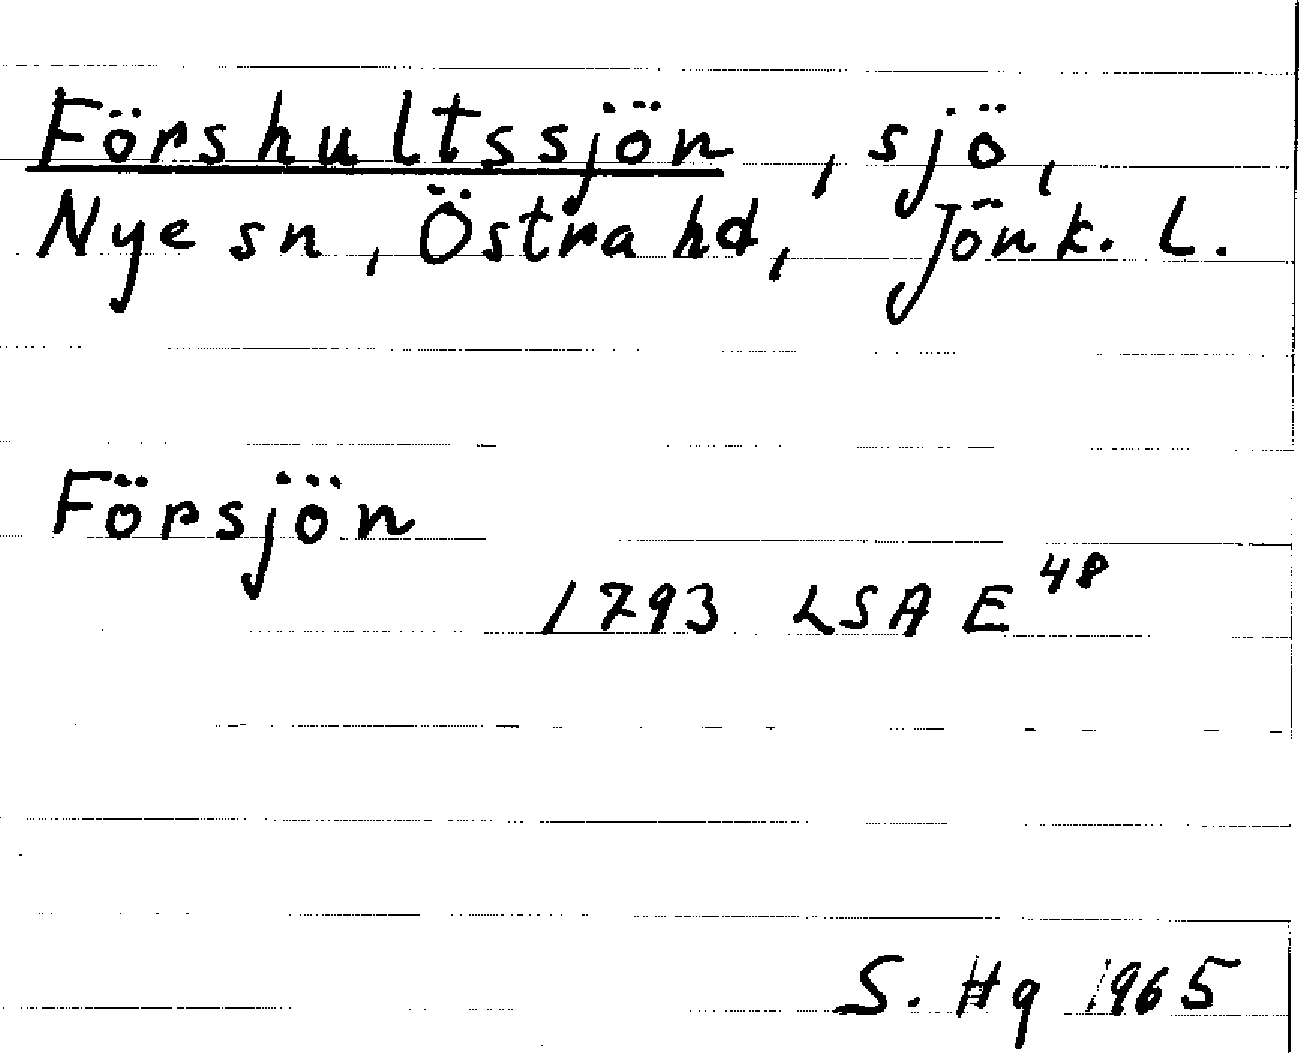 Förshultssjön, sjö,
Nye sn, Östra hd, Jönk. L.
Försjön
1793 LSA E 48
S. Hg 1965